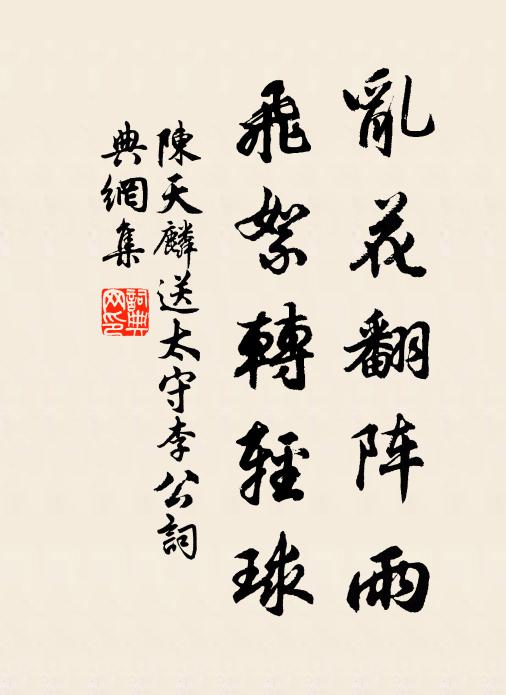 亂花翻阵雨
飛絮轉輕球
陳天麟送太守李公詞
典網集
詞典
网印